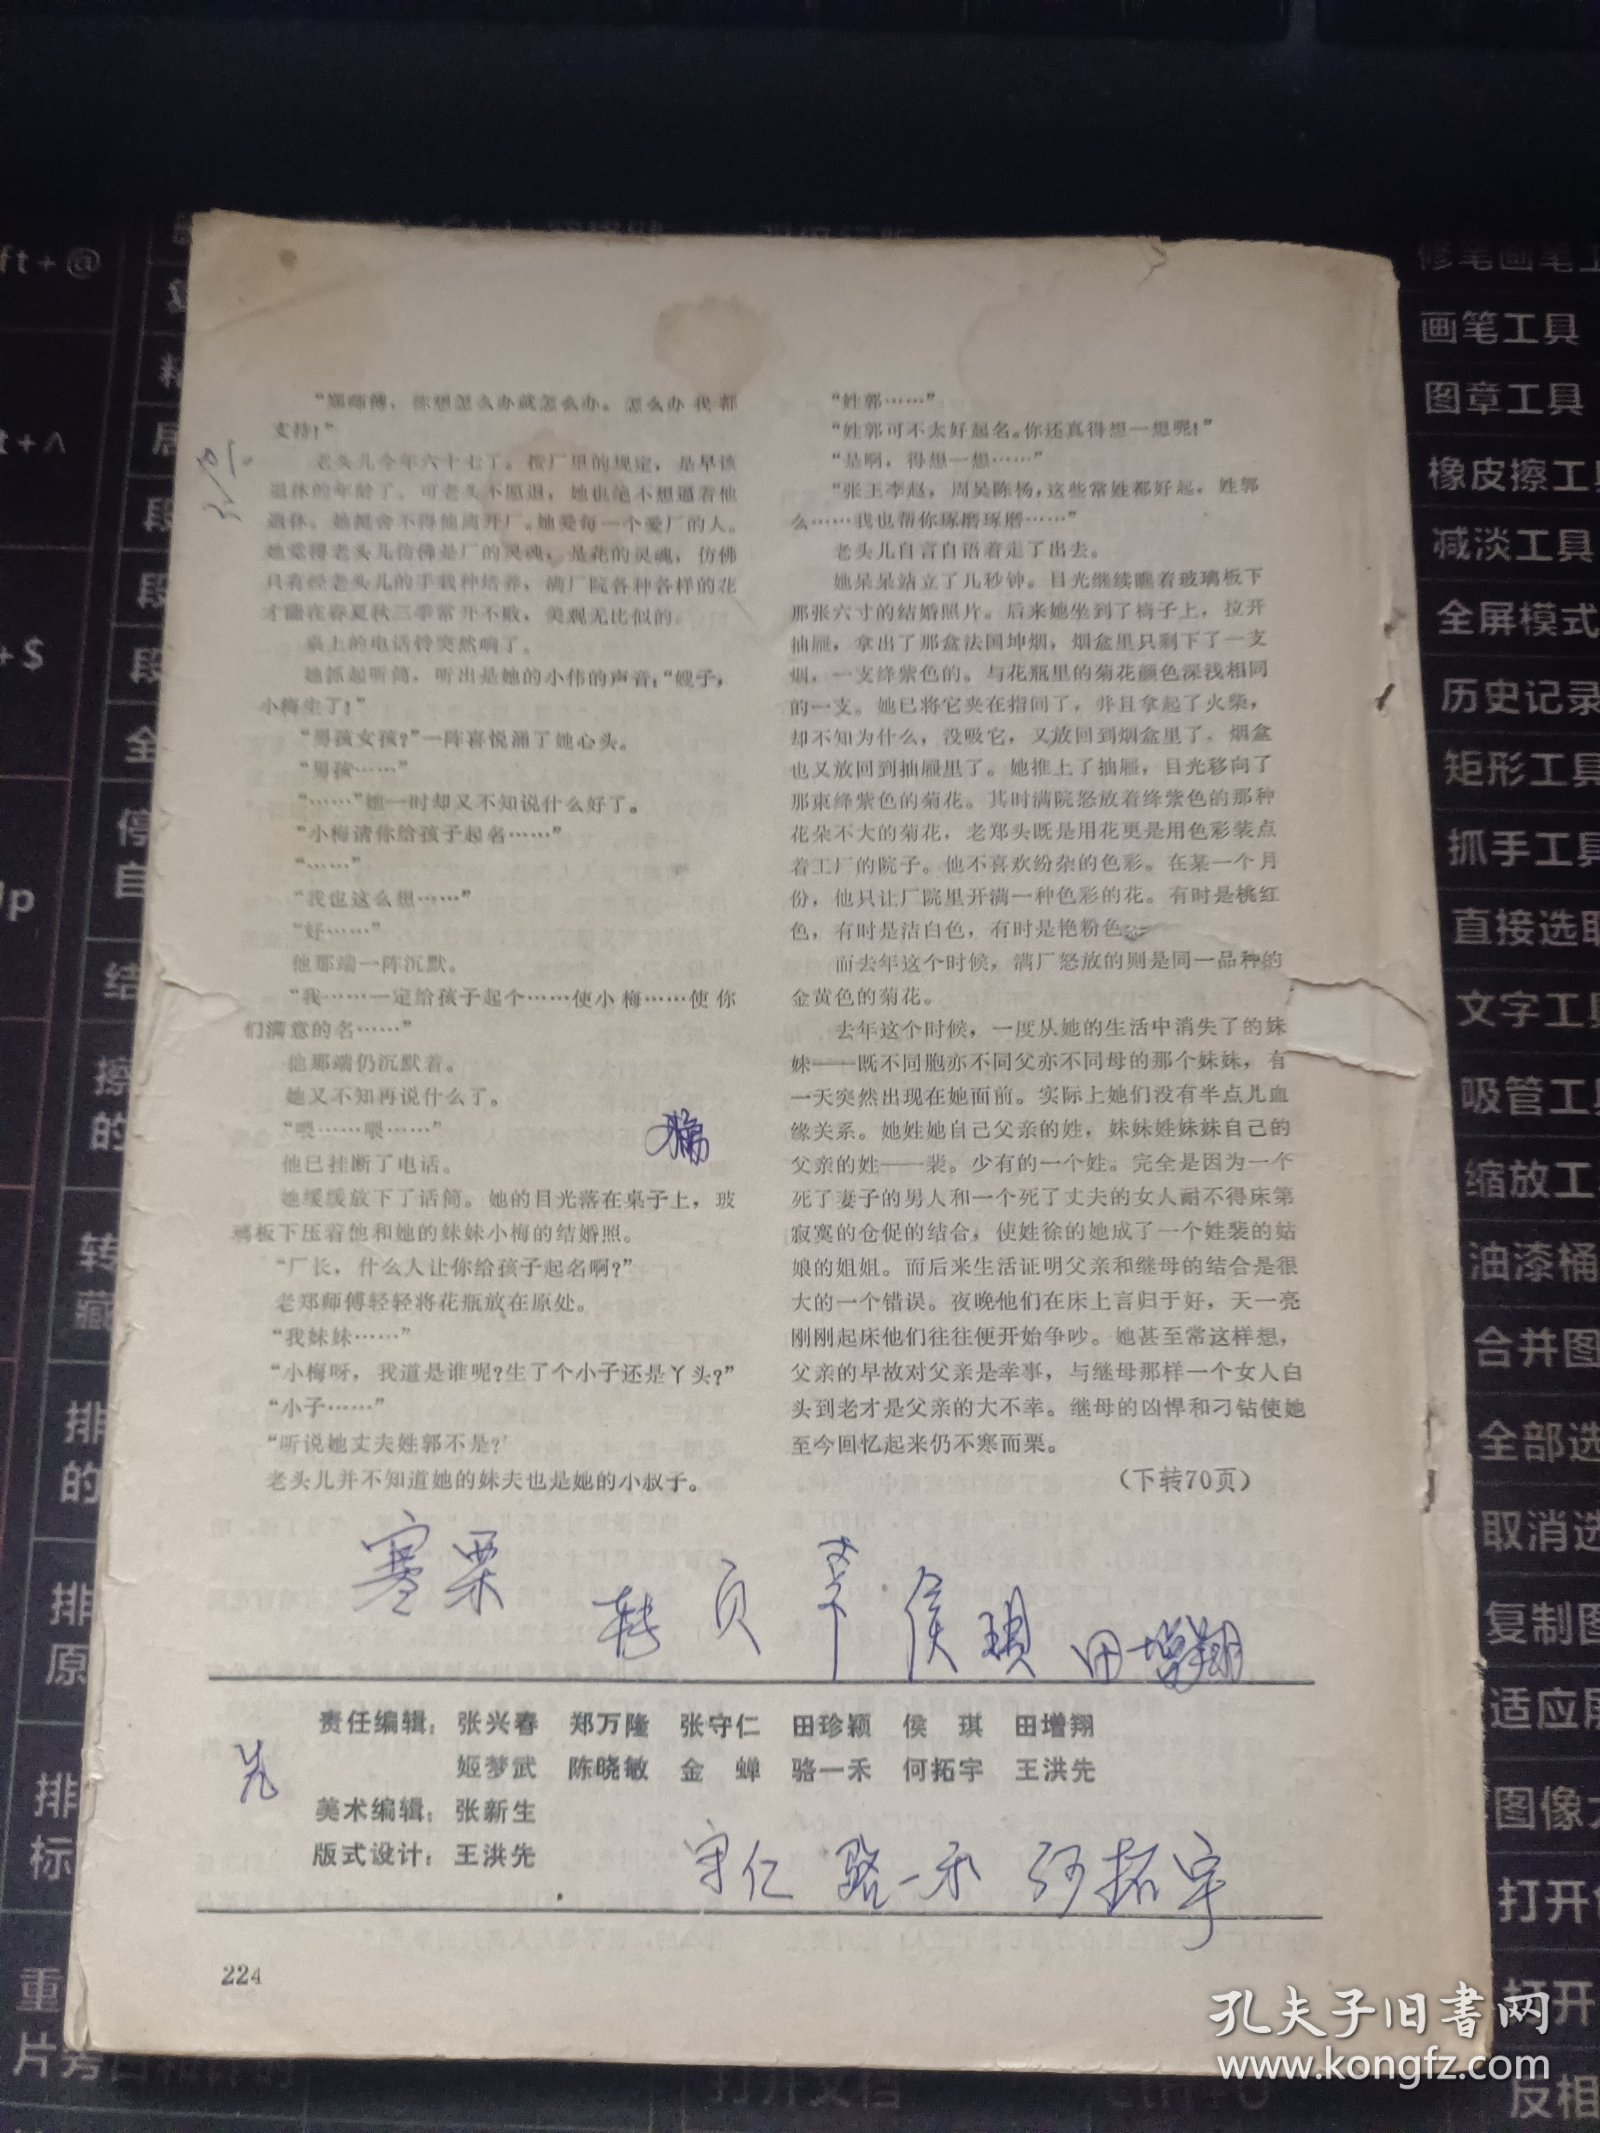 “郑师傅，你想怎么办就怎么办。怎么办我都
支持！”
老头儿今年六十七了。按厂里的规定，是早该
退休的年龄了。可老头不愿退，她也绝不想逼着他
退休。她挺舍不得他离开厂。她爱每一个爱厂的人。
她觉得老头儿仿佛是厂的灵魂，是花的灵魂，仿佛
只有经老头儿的手栽种培养，满厂院各种各样的花
才能在春夏秋三季常开不败，美观无比似的。
桌上的电话铃突然响了。
她抓起听筒，听出是她的小伟的声音：“嫂子，
小梅生了！”
“男孩女孩？”一阵喜悦涌了她心头。
“男孩……”
“……”她一时却又不知说什么好了。
“小梅请你给孩子起名……”
“……”
“我也这么想……”
“好……”
他那端一阵沉默。
“我……一定给孩子起个……使小梅……使你
们满意的名……”
他那端仍沉默着。
她又不知再说什么了。
“喂……喂……”
他已挂断了电话。
她缓缓放下了话筒。她的目光落在桌子上，玻
璃板下压着他和她的妹妹小梅的结婚照。
“厂长，什么人让你给孩子起名啊？”
老郑师傅轻轻将花瓶放在原处。
“我妹妹……”
“小梅呀，我道是谁呢？生了个小子还是丫头？”
“小子……”
“听说她丈夫姓郭不是？”
老头儿并不知道她的妹夫也是她的小叔子。
“姓郭……”
“姓郭可不太好起名。你还真得想一想呢！”
“是啊，得想一想……”
“张王李赵，周吴陈杨，这些常姓都好起，姓郭
么……我也帮你琢磨琢磨……”
老头儿自言自语着走了出去。
她呆呆站立了几秒钟。目光继续瞧着玻璃板下
那张六寸的结婚照片。后来她坐到了椅子上，拉开
抽屉，拿出了那盒法国坤烟，烟盒里只剩下了一支
烟，一支绛紫色的。与花瓶里的菊花颜色深浅相同
的一支。她已将它夹在指间了，并且拿起了火柴，
却不知为什么，没吸它，又放回到烟盒里了。烟盒
也又放回到抽屉里了。她推上了抽屉，目光移向了
那束绛紫色的菊花。其时满院怒放着绛紫色的那种
花朵不大的菊花，老郑头既是用花更是用色彩装点
着工厂的院子。他不喜欢纷杂的色彩。在某一个月
份，他只让厂院里开满一种色彩的花。有时是桃红
色，有时是洁白色，有时是艳粉色……
而去年这个时候，满厂怒放的则是同一品种的
金黄色的菊花。
去年这个时候，一度从她的生活中消失了的妹
妹——既不同胞亦不同父亦不同母的那个妹妹，有
一天突然出现在她面前。实际上她们没有半点儿血
缘关系。她姓她自己父亲的姓，妹妹姓妹妹自己的
父亲的姓——裴。少有的一个姓。完全是因为一个
死了妻子的男人和一个死了丈夫的女人耐不得床第
寂寞的仓促的结合，使姓徐的她成了一个姓裴的姑
娘的姐姐。而后来生活证明父亲和继母的结合是很
大的一个错误。夜晚他们在床上言归于好，天一亮
刚刚起床他们往往便开始争吵。她甚至常这样想，
父亲的早故对父亲是幸事，与继母那样一个女人白
头到老才是父亲的大不幸。继母的凶悍和刁钻使她
至今回忆起来仍不寒而栗。
（下转70页）
寒栗
转 页 侯 琪 田增翔
责任编辑：张兴春 郑万隆 张守仁 田珍颖 侯 琪 田增翔
姬梦武 陈晓敏 金 蝉 骆一禾 何拓宇 王洪先
美术编辑：张新生
版式设计：王洪先
守仁 骆一禾 何拓宇
224
孔夫子旧书网
www.kongfz.com
画笔工具
图章工具
橡皮擦工具
减淡工具
全屏模式
历史记录
矩形工具
抓手工具
直接选取
文字工具
吸管工具
缩放工
油漆桶
合并图
全部选
取消选
复制图
适应屏
图像大
打开
打开
反相
打开文档